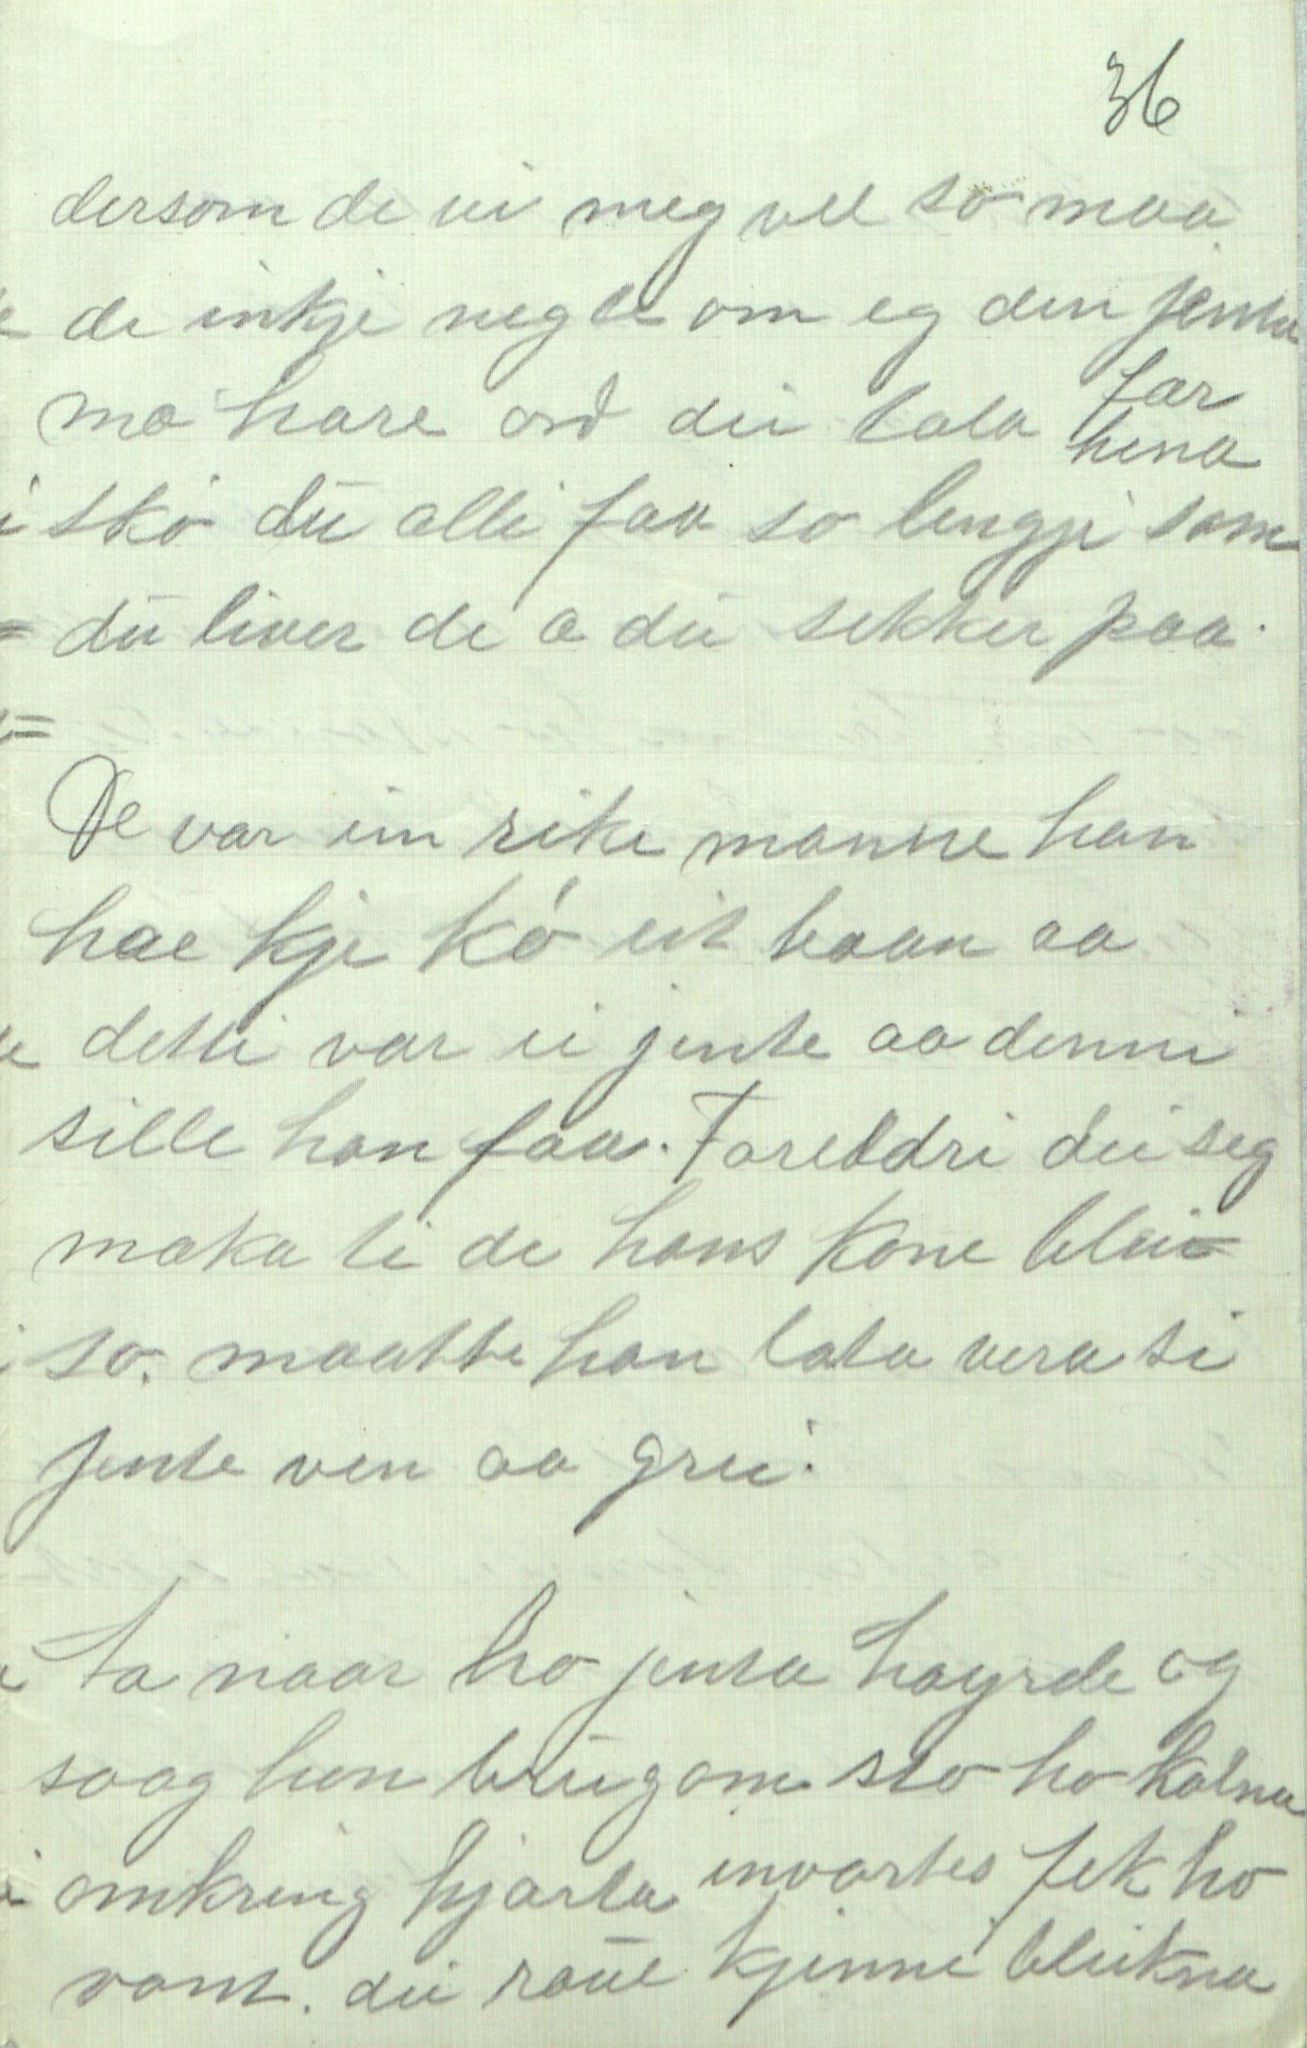 36
dersom de vi meg vel so maa
de inkje negte om eg den jenta
mo hare ord dei tala far
hena
sko du alli faa so lengji som
du liver de æ du sekker paa.
De var ein rike manne han
hae kje ko eit baan aa
detti var ei jente aa denni
sille han faa. Foreldri dei seg
maka ti de hans kone blei
so. maatte han lata vera si
jente ven aa grei.
ta naar ho jenta høyrde og
saag hen brugom sto ho kolna
omkring hjarta invartes fek ho
vont. dei roue kjinni bleikna